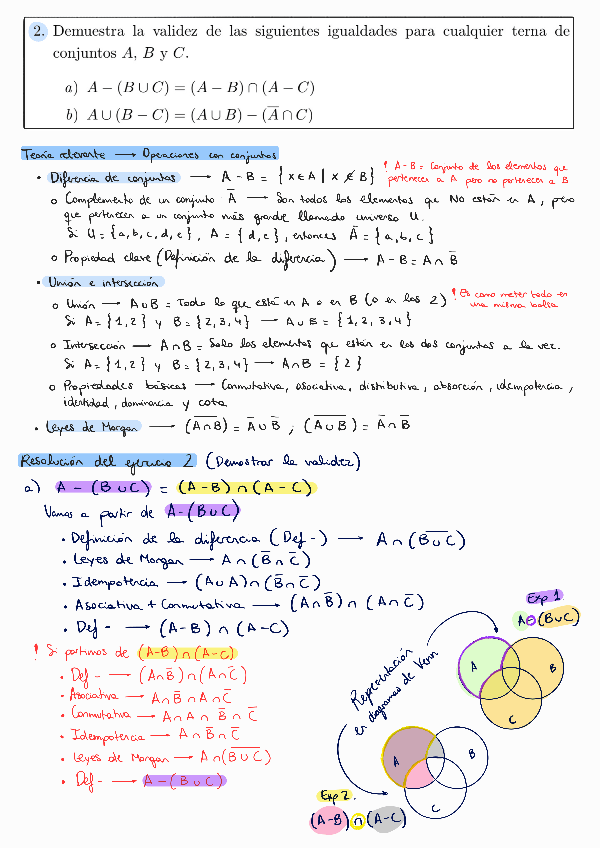 2. Demuestra la validez de las siguientes igualdades para cualquier terna de
conjuntos A, B y C.
a) A − (B ∪ C) = (A − B) ∩ (A − C)
b) A ∪ (B − C) = (A ∪ B) − (A̅ ∩ C)
Teoría relevante → Operaciones con conjuntos
• Diferencia de conjuntos → A - B = { x ∈ A | x ∉ B }
! A - B = Conjunto de los elementos que
pertenecen a A pero no pertenecen a B
o Complemento de un conjunto A̅ → Son todos los elementos que No están en A, pero
que pertenecen a un conjunto más grande llamado universo U.
Si U = {a, b, c, d, e}, A = {d, e}, entonces A̅ = {a, b, c}
o Propiedad clave (Definición de la diferencia) → A - B = A ∩ B̅
• Unión e intersección
o Unión → A ∪ B = Todo lo que está en A o en B (o en los 2)
! Es como meter todo en
una misma bolsa
Si A = {1, 2} y B = {2, 3, 4} → A ∪ B = {1, 2, 3, 4}
o Intersección → A ∩ B = Solo los elementos que están en los dos conjuntos a la vez.
Si A = {1, 2} y B = {2, 3, 4} → A ∩ B = {2}
o Propiedades básicas → Conmutativa, asociativa, distributiva, absorción, idempotencia,
identidad, dominancia y cota
• Leyes de Morgan → (A̅ ̅∩̅ ̅B̅) = A̅ ∪ B̅ ; (A̅ ̅∪̅ ̅B̅) = A̅ ∩ B̅
Resolución del ejercicio 2 (Demostrar la validez)
a) A - (B ∪ C) = (A - B) ∩ (A - C)
Vamos a partir de A - (B ∪ C)
• Definición de la diferencia (Def -) → A ∩ (B̅ ̅∪̅ ̅C̅)
• Leyes de Morgan → A ∩ (B̅ ∩ C̅)
• Idempotencia → (A ∪ A) ∩ (B̅ ∩ C̅)
• Asociativa + Conmutativa → (A ∩ B̅) ∩ (A ∩ C̅)
• Def - → (A - B) ∩ (A - C)
! Si partimos de (A - B) ∩ (A - C)
• Def - → (A ∩ B̅) ∩ (A ∩ C̅)
• Asociativa → A ∩ B̅ ∩ A ∩ C̅
• Conmutativa → A ∩ A ∩ B̅ ∩ C̅
• Idempotencia → A ∩ B̅ ∩ C̅
• Leyes de Morgan → A ∩ (B̅ ̅∪̅ ̅C̅)
• Def - → A - (B ∪ C)
Exp 1.
A - (B ∪ C)
A
B
C
Representación
en diagramas de Venn
A
B
C
Exp 2.
(A - B) ∩ (A - C)